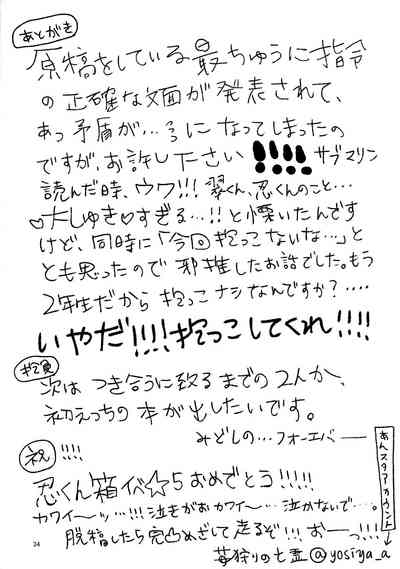 あとがき
原稿をしている最ちゅうに指令
の正確な文面が発表されて、
あっ矛盾が…ってなってしまったの
ですが、お許し下さい!!!! サブマリン
読んだ時、ウワ!!!翠くん、忍くんのこと…
♡大しゅき♡すぎる…!!と慄いたんです
けど、同時に「今回抱っこないな…」と
とも思ったので邪推したお話でした。もう
2年生だから抱っこナシなんですか?….
いやだ!!!!抱っこしてくれ!!!!
抱負
次はつき合うに致るまでの2人か、
初えっちの本が出したいです。
みどしの…フォーエバー
祝!!!!
忍くん箱イベ☆5おめでとう!!!!!
カワイ〜ッ…!!!泣きがおカワイ〜…泣かないで…。
脱稿したら完凸めざして走るぞ!!!おーっ!!!
あんスタアカウント
苺狩りの七霊@yosiya_a
24